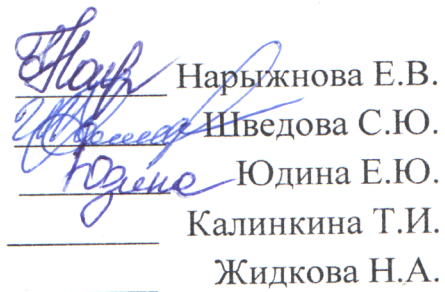 Нарыжнова Е.В.
Шведова С.Ю.
Юдина Юдина Е.Ю.
Калинкина Т.И.
Жидкова Н.А.